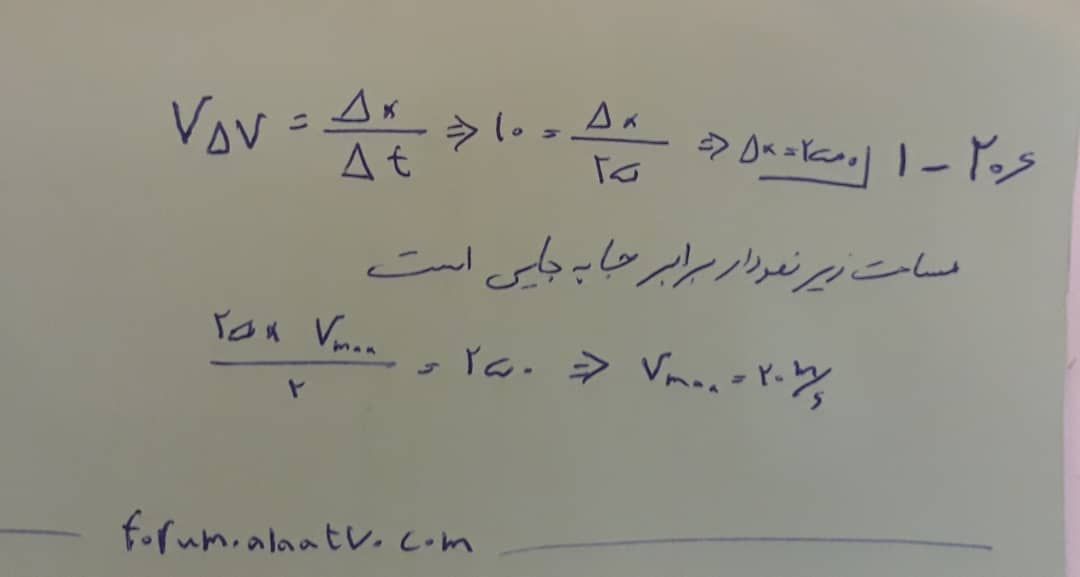 ۲۰۶ - ۱ V_ΔV = Δx/Δt ⇒ ۱۰ = Δx/۲۵ ⇒ Δx = ۲۵۰
مساحت زیر نمودار برابر جا به جایی است
(۲۵ × V_max)/۲ = ۲۵۰ ⇒ V_max = ۲۰ m/s
forum.alaatv.com